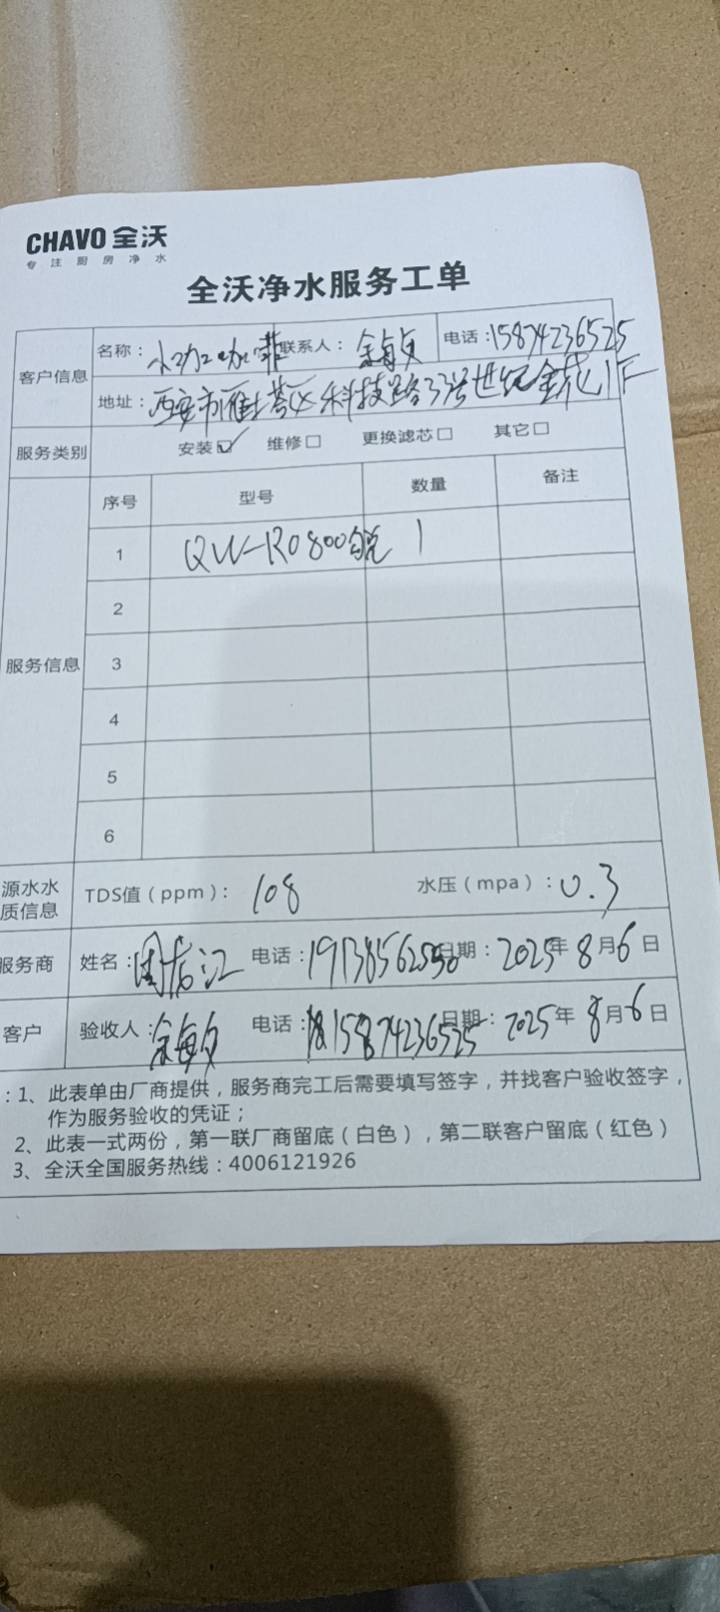 CHAVO 全沃
专注厨房净水
全沃净水服务工单
客户信息 名称：小加咖啡 联系人：余每文 电话：15874236525
地址：西安市雁塔区科技路33号世纪金花1F
服务类别 安装☑ 维修□ 更换滤芯□ 其它□
服务信息 序号 型号 数量 备注
1 QW-RO800 1
2
3
4
5
6
源水水质信息 TDS值（ppm）：108 水压（mpa）：0.3
服务商 姓名： 电话：19138562550 日期：2025年8月6日
客户 验收人：余每文 电话：15874236525 日期：2025年8月6日
：1、此表单由厂商提供，服务商完工后需要填写签字，并找客户验收签字，
作为服务验收的凭证；
2、此表一式两份，第一联厂商留底（白色），第二联客户留底（红色）
3、全沃全国服务热线：4006121926